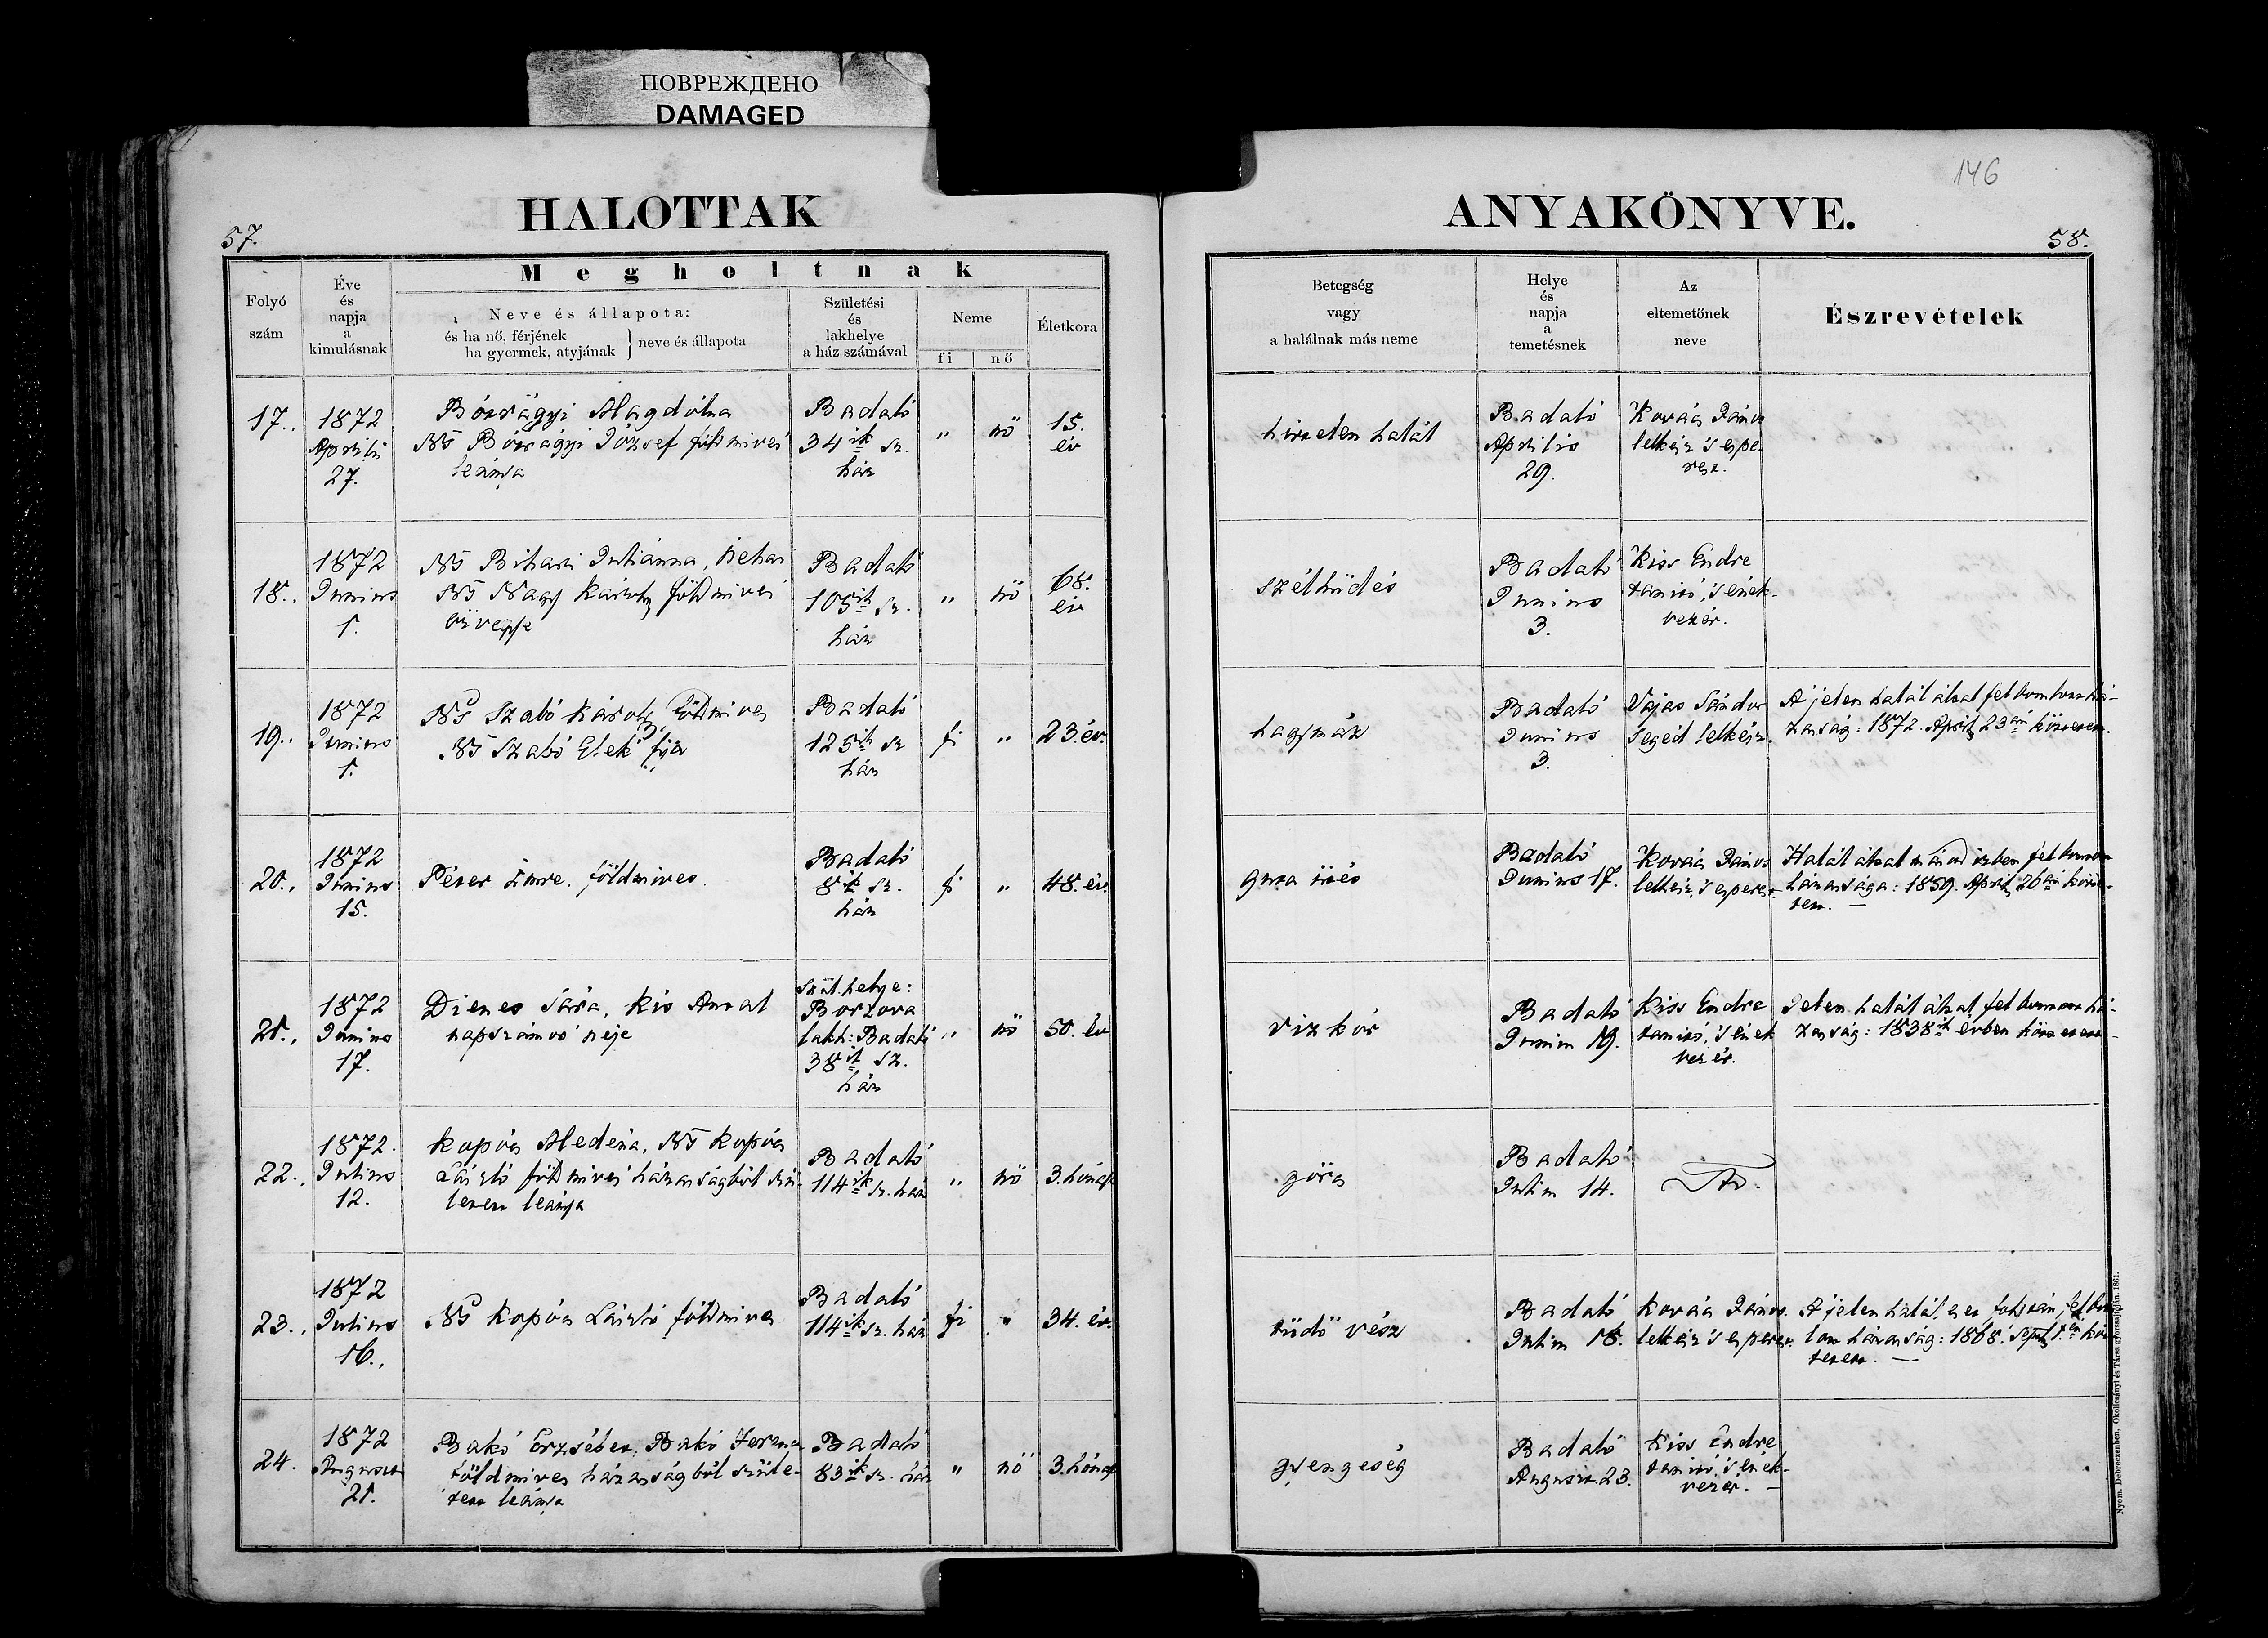 ПОВРЕЖДЕНО
DAMAGED
146
HALOTTAK
ANYAKÖNYVE.
57.
58.
Megholtnak
Folyó
szám
Éve
és
napja
a
kimulásnak
Neve és állapota:
és ha nő, férjének
ha gyermek, atyjának
neve és állapota
Születési
és
lakhelye
a ház számával
Neme
fi
nő
Életkora
Betegség
vagy
a halálnak más neme
Helye
és
napja
a
temetésnek
Az
eltemetőnek
neve
Észrevételek
17.
1872
Aprilis
27.
Magdolna
József földmives
leánya
Badaló
34ik sz.
ház
"
nő
15.
év
hirtelen halál
Badaló
Aprilis
29.
Kovács János
lelkész 's espe-
res.
18.
1872
Junius
1.
Ns Bihari Juliánna, néhai
Ns Nagy Károly földmives
özvegye
Badaló
105ik sz.
ház
"
nő
68.
év
szélhüdés
Badaló
Junius
3.
Kiss Endre
tanitó, 's ének-
vezér.
19.
1872
Junius
1.
Ns Szabó Károly földmives
Ns Szabó Elek fija
Badaló
125ik sz
ház
fi
"
23. év.
hagymáz
Badaló
Junius
3.
Vajas Sándor
segéd lelkész.
A jelen halál által felbomlott há-
zasság: 1872. April 23án köttetett.
20.
1872
Junius
15.
Péter Imre. földmives.
Badaló
8ik sz.
ház
fi
"
48. év
guta ütés
Badaló
Junius 17.
Kovács János
lelkész, 's esperes
Halál által felbomlott
házassága: 1859. April 26án kötte-
tett. —
21.
1872
Junius
17.
Dienes Sára, Kis Antal
napszámos neje
Szül. helye:
Borzova
lakh: Badaló
38ik sz.
ház
"
nő
50. év
viz kór
Badaló
Junius 19.
Kiss Endre
tanitó, 's ének
vezér.
Jelen halál által felbomlott há-
zasság: 1838ik évben köttetett
22.
1872.
Julius
12.
Kopócs Ns Kopócs
László földmives házasságból szü-
letett leánya
Badaló
114ik sz. ház
"
nő
3. hónap
görcs
Badaló
Julius 14.
23.
1872
Julius
16.
Ns Kopócs László földmives
Badaló
114ik sz. ház
fi
"
34. év.
tüdő vész
Badaló
Julius 18.
Kovács János
lelkész 's esperes.
A jelen halál eset folytán felbom-
lott házasság: 1868. Sept. 1én köt-
tetett. —
24.
1872
August
21.
Bakó Erzsébet. Bakó Ferencz
földmives házasságból szüle-
tett leánya
Badaló
83ik sz. ház
"
nő
3. hónap
gyengeség
Badaló
August 23.
Kiss Endre
tanitó, 's ének-
vezér. —